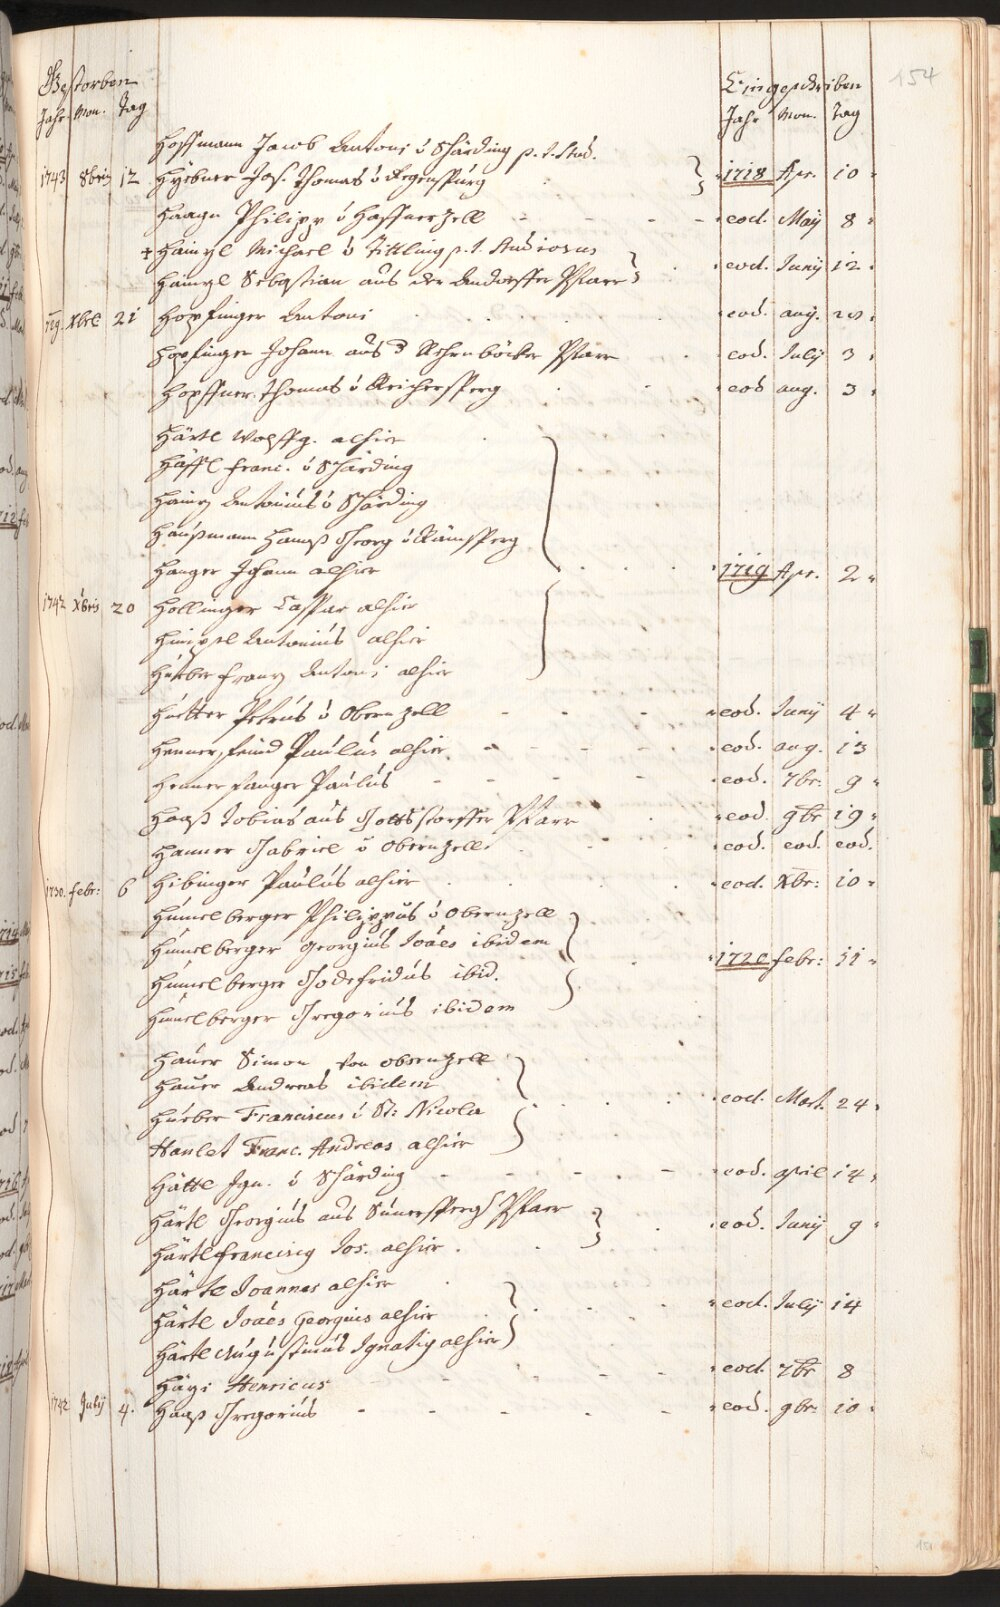 154
Gestorben Eingeschriben
Jahr Mon. Tag Jahr Mon. Tag
Hoffmann Jacob Antoni v Schärding p. t. Stud.
1743 8bris 12 Hyebner Jos. Thomas v Regenspurg 1718 Apr. 10
Haagn Philipp v Haffnerzell eod. Maÿ 8
+ Haingl Michael v Tittling p. t. Studiosus
Haingl Sebastian aus der Andorffer Pfarr eod. Junÿ 12
Xbre 21 Hopfinger Antoni eod.
Hopfinger Johann aus Pfarr eod. Julÿ 3
Hopffner Thomas v Reichersperg eod aug. 3
Härtl Wolffg. alhier
Häffl Franc. v Schärding
Antonius v Schärding
Haußmann Hannß Georg v
Hanger Johann alhier 1719 Apr. 2
1742 Xbris 20 Hollinger Caspar alhier
Antonius alhier
Hueber Franz Antoni alhier
Huetter Petrus v Obernzell eod. Junÿ 4
Paulus alhier eod. aug. 13
Hennerfanger Paulus eod. 7br: 9
Haaß Tobias aus Pfarr eod. 9br 19
Hanner Gabriel v Obernzell eod. eod. eod.
1730. febr: 6 Hibinger Paulus alhier eod. Xbr: 10
Humelberger Philippus v Obernzell
Humelberger Georgius Joães ibidem
Humelberger Godefridus ibid. 1720 febr: 11
Humelberger Gregorius ibidem
Hauer Simon von Obernzell
Hauer Andreas ibidem
Hueber Franciscus v St: Nicola eod. Mart. 24
Hanlet Franc. Andreas alhier
Hättl Ign. v Schärding eod. april 14
Härtl Georgius aus Pfarr eod. Junÿ 9
Härtl Jos. alhier
Härtl Joannes alhier
Härtl Joães Georgius alhier eod. Julÿ 14
Härtl Augustinus Ignatig alhier
Hägi Henricus eod. 7br 8
1742 Julÿ 4. Haaß Gregorius eod. 9br. 10
151